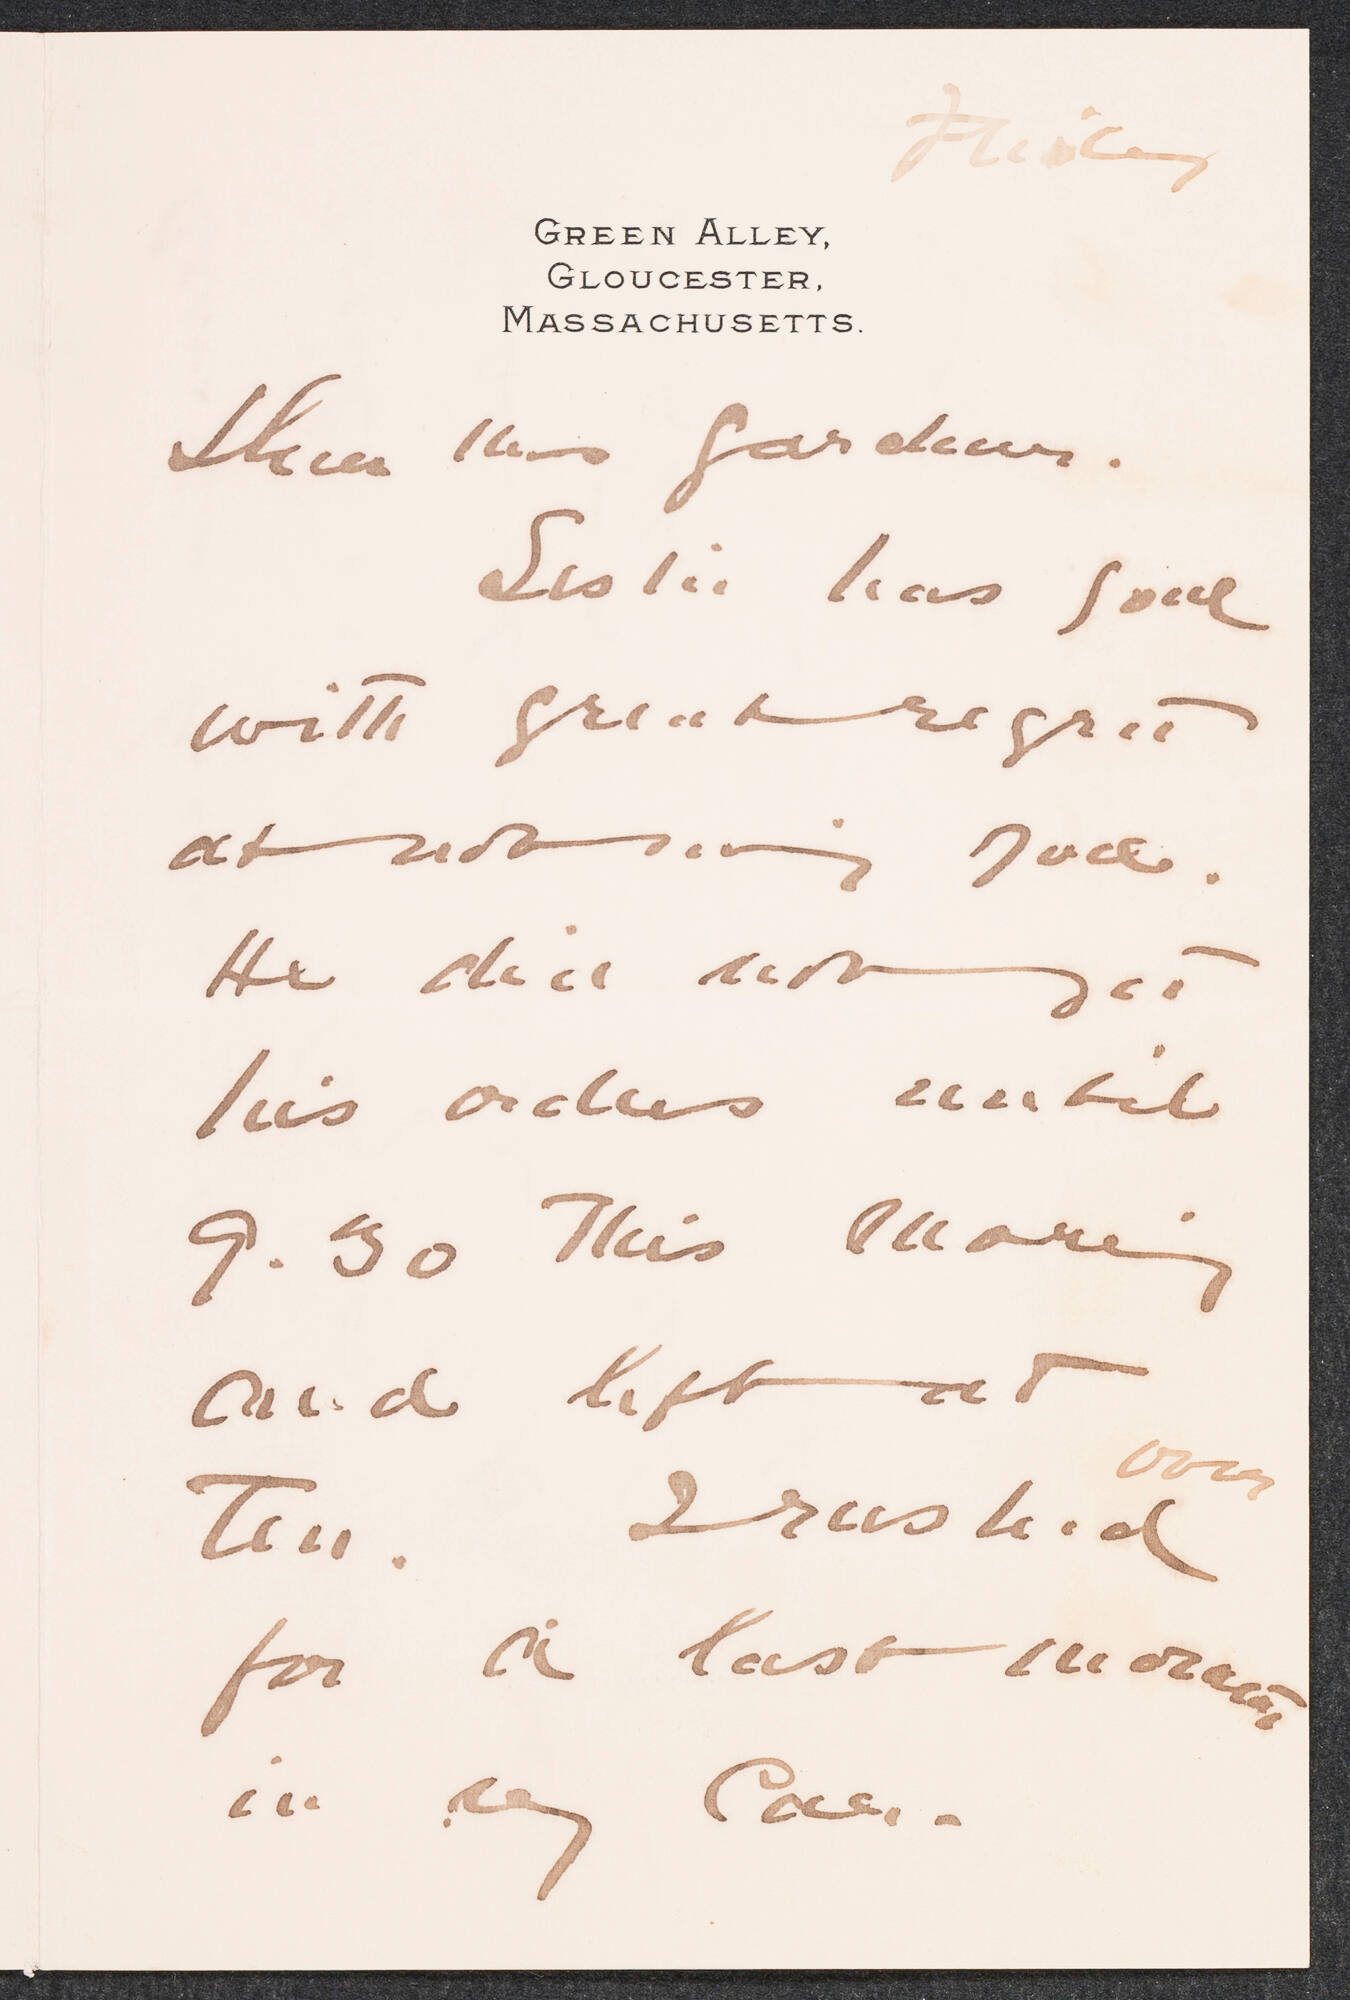 Friday
GREEN ALLEY,
GLOUCESTER,
MASSACHUSETTS.
Dear Mrs Gardner.
Leslie has gone
with great regret
at not seeing you.
He did not get
his orders until
9.30 this morning
and left at
Ten. I rushed
over
for a last moment
in my Car.